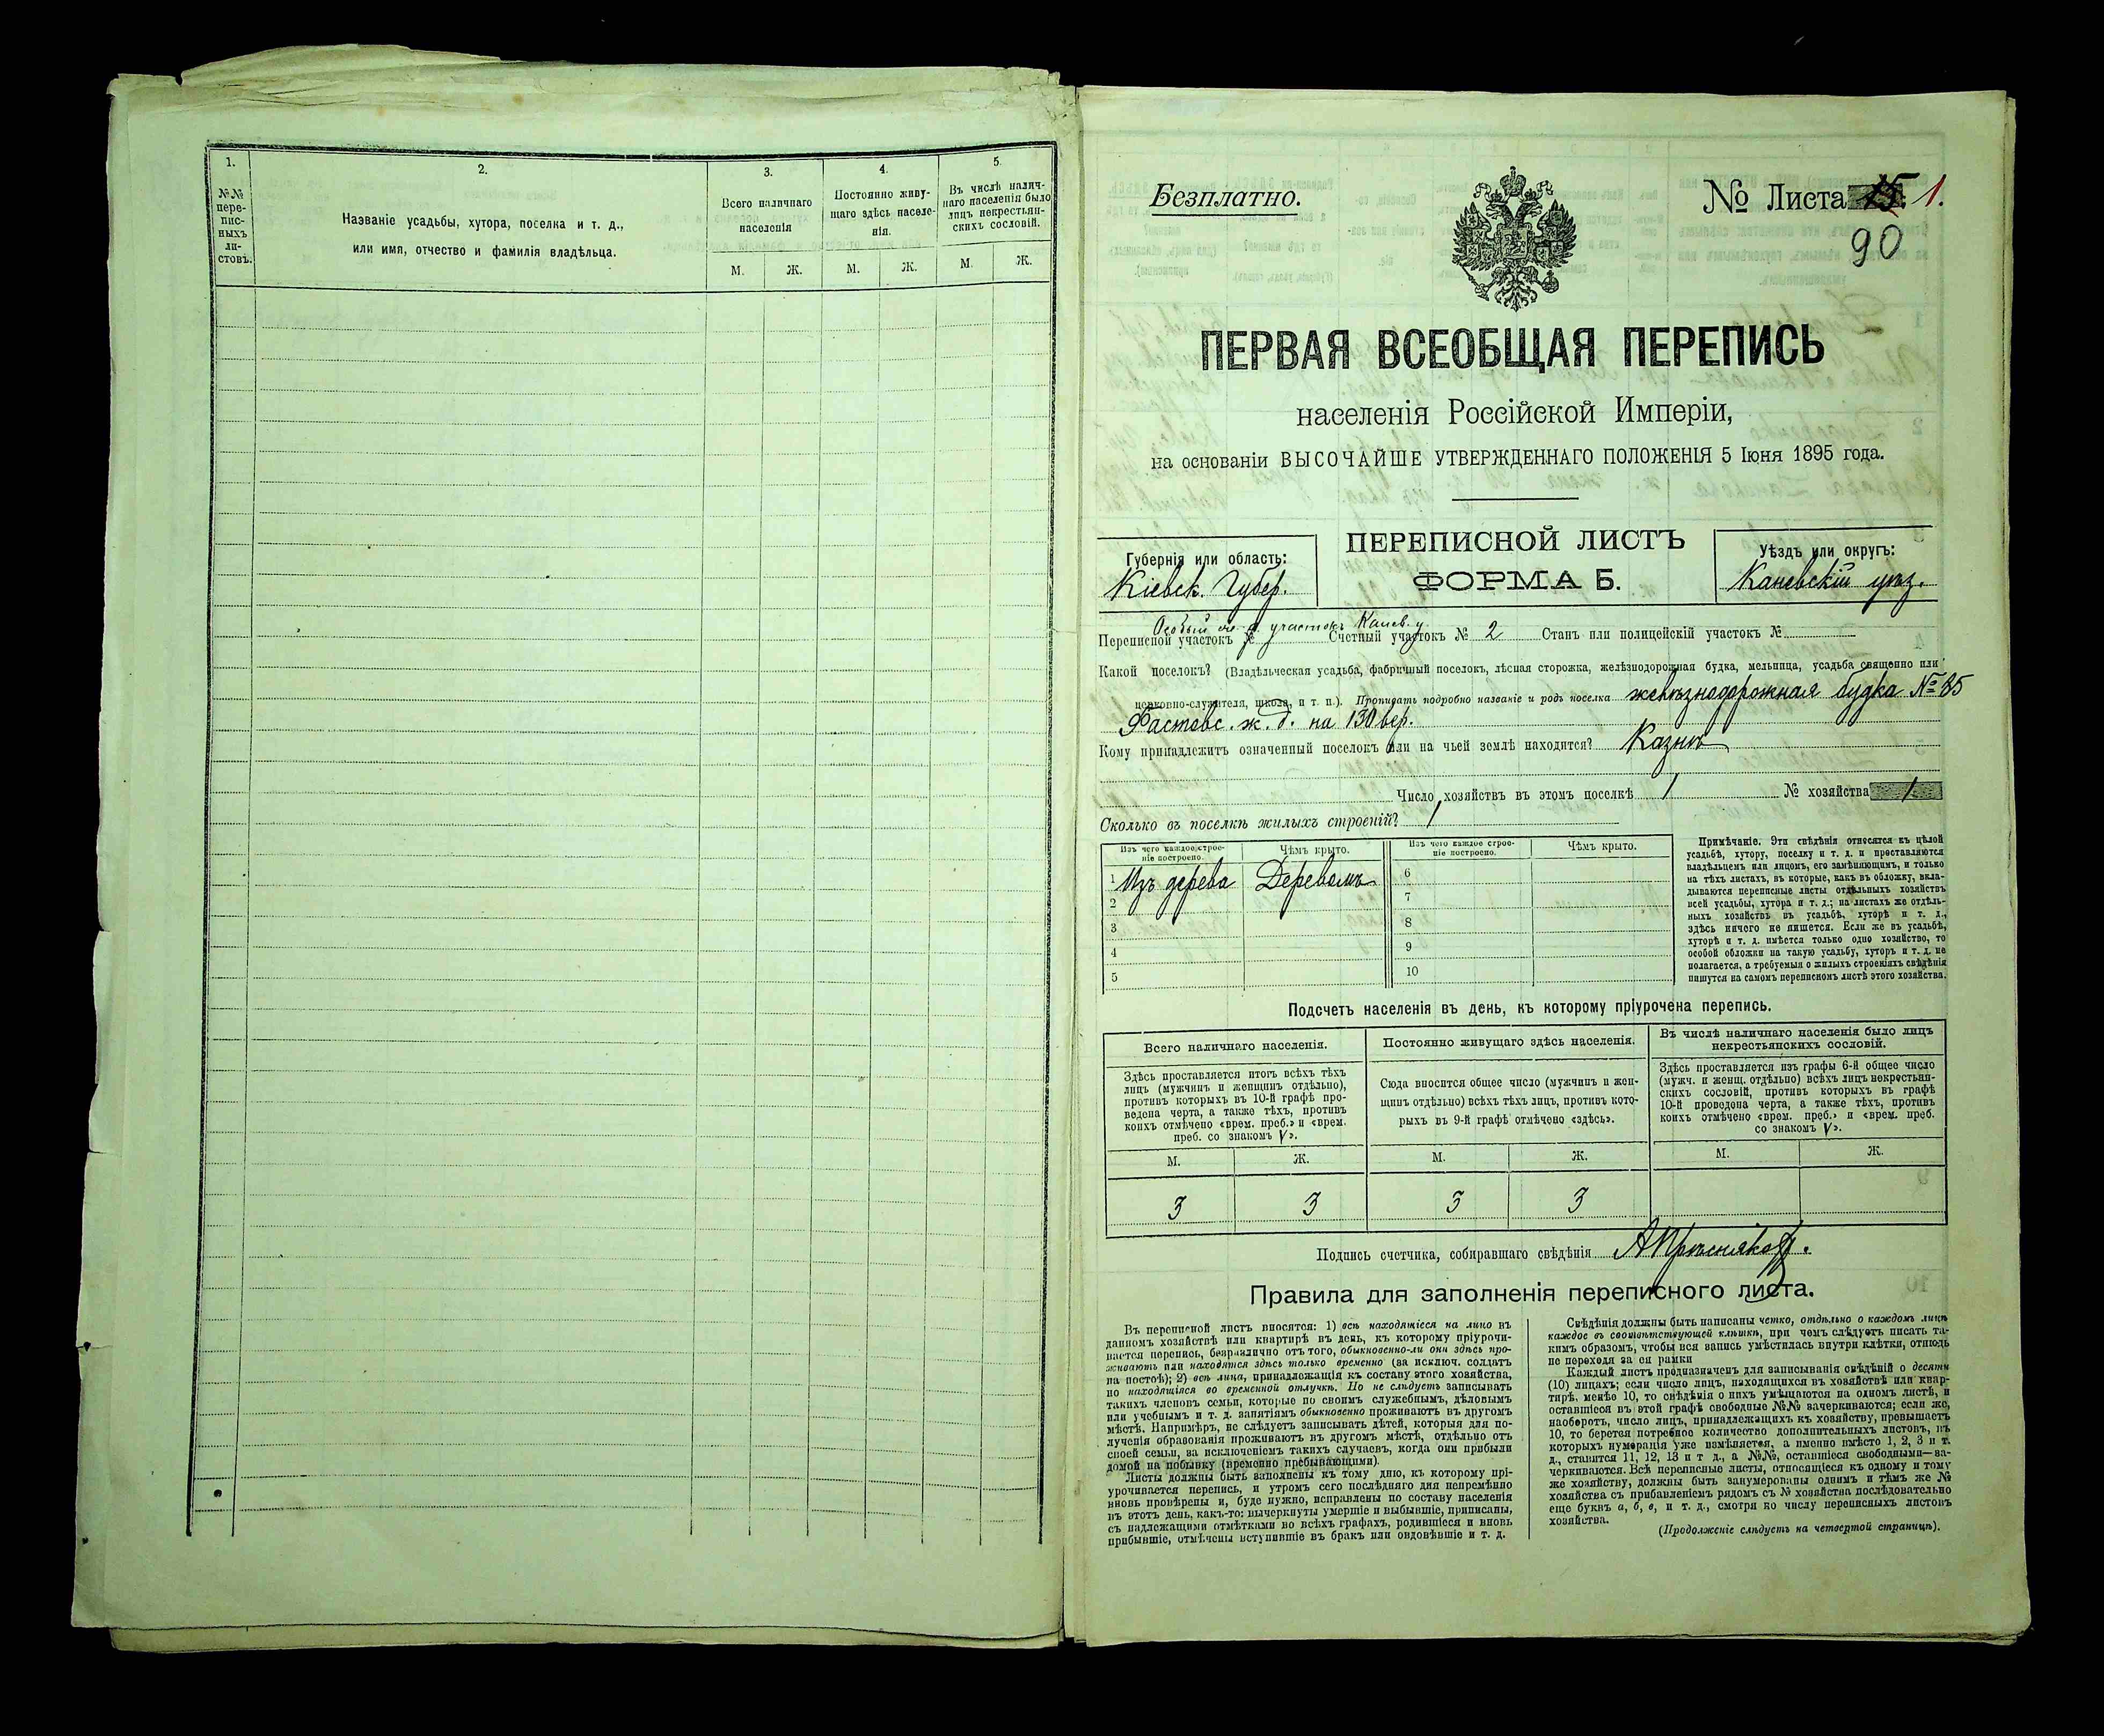 1.
2.
3.
4.
5.
№№ пере-писныхъ ли-стовъ.
Названіе усадьбы, хутора, поселка и т. д.,
или имя, отчество и фамилія владѣльца.
Всего наличнаго
населенія
Постоянно живу-
щаго здѣсь населе-
нія.
Въ числѣ налич-
наго населенія было
лицъ некрестьян-
скихъ сословій.
М. Ж. М. Ж. М. Ж.
Безплатно.
№ Листа 15 1.
90
ПЕРВАЯ ВСЕОБЩАЯ ПЕРЕПИСЬ
населенія Россійской Имперіи,
на основаніи ВЫСОЧАЙШЕ УТВЕРЖДЕННАГО ПОЛОЖЕНІЯ 5 Іюня 1895 года.
Губернія или область:
Кіевск. Губер.
ПЕРЕПИСНОЙ ЛИСТЪ
ФОРМА Б.
Уѣздъ или округъ:
Каневскій уѣз.
Особый участокъ Канев. у.
Переписной участокъ № Счетный участокъ № 2 Станъ или полицейскій участокъ №
Какой поселокъ? (Владѣльческая усадьба, фабричный поселокъ, лѣсная сторожка, желѣзнодорожная будка, мельница, усадьба священно или
церковно-служителя, школа, и т. п.). Прописать подробно названіе и родъ поселка желѣзнодорожная будка № 85
Фастовс. ж. д. на 130 вер.
Кому принадлежитъ означенный поселокъ или на чьей землѣ находится? Казнѣ
Число хозяйствъ въ этомъ поселкѣ 1 № хозяйства 1
Сколько въ поселкѣ жилыхъ строеній? 1
Изъ чего каждое строе-
ніе построено.
Чѣмъ крыто.
Изъ чего каждое строе-
ніе построено.
Чѣмъ крыто.
1 Изъ дерева Деревомъ 6
2 7
3 8
4 9
5 10
Примѣчаніе. Эти свѣдѣнія относятся къ цѣлой
усадьбѣ, хутору, поселку и т. д. и проставляются
владѣльцемъ или лицомъ, его замѣняющимъ, и только
на тѣхъ листахъ, въ которые, какъ въ обложку, вкла-
дываются переписные листы отдѣльныхъ хозяйствъ
всей усадьбы, хутора и т. д.; на листахъ же отдѣль-
ныхъ хозяйствъ въ усадьбѣ, хуторѣ и т. д.,
здѣсь ничего не пишется. Если же въ усадьбѣ,
хуторѣ и т. д. имѣется только одно хозяйство, то
особой обложки на такую усадьбу, хуторъ и т. д. не
полагается, а требуемыя о жилыхъ строеніяхъ свѣдѣнія
пишутся на самомъ переписномъ листѣ этого хозяйства.
Подсчетъ населенія въ день, къ которому пріурочена перепись.
Всего наличнаго населенія.
Постоянно живущаго здѣсь населенія.
Въ числѣ наличнаго населенія было лицъ
некрестьянскихъ сословій.
Здѣсь проставляется итогъ всѣхъ тѣхъ
лицъ (мужчинъ и женщинъ отдѣльно),
противъ которыхъ въ 10-й графѣ про-
ведена черта, а также тѣхъ, противъ
коихъ отмѣчено «врем. преб.» и «врем.
преб. со знакомъ V».
Сюда вносится общее число (мужчинъ и жен-
щинъ отдѣльно) всѣхъ тѣхъ лицъ, противъ кото-
рыхъ въ 9-й графѣ отмѣчено «здѣсь».
Здѣсь проставляется изъ графы 6-й общее число
(мужч. и женщ. отдѣльно) всѣхъ лицъ некрестьян-
скихъ сословій, противъ которыхъ въ графѣ
10-й проведена черта, а также тѣхъ, противъ
коихъ отмѣчено «врем. преб.» и «врем. преб.
со знакомъ V».
М. Ж. М. Ж. М. Ж.
3 3 3 3
Подпись счетчика, собиравшаго свѣдѣнія А Прѣсняковъ.
Правила для заполненія переписного листа.
Въ переписной листъ вносятся: 1) всѣ находящіеся на лицо въ
данномъ хозяйствѣ или квартирѣ въ день, къ которому пріурочи-
вается перепись, безразлично отъ того, обыкновенно-ли они здѣсь про-
живаютъ или находятся здѣсь только временно (за исключ. солдатъ
на постоѣ); 2) всѣ лица, принадлежащія къ составу этого хозяйства,
но находящіяся во временной отлучкѣ. Но не слѣдуетъ записывать
такихъ членовъ семьи, которые по своимъ служебнымъ, дѣловымъ
или учебнымъ и т. д. занятіямъ обыкновенно проживаютъ въ другомъ
мѣстѣ. Напримѣръ, не слѣдуетъ записывать дѣтей, которыя для по-
лученія образованія проживаютъ въ другомъ мѣстѣ, отдѣльно отъ
своей семьи, за исключеніемъ такихъ случаевъ, когда они прибыли
домой на побывку (временно пребывающими).
Листы должны быть заполнены къ тому дню, къ которому прі-
урочивается перепись, и утромъ сего послѣдняго дня непремѣнно
вновь провѣрены и, буде нужно, исправлены по составу населенія
въ этотъ день, какъ-то: вычеркнуты умершіе и выбывшіе, приписаны,
съ надлежащими отмѣтками во всѣхъ графахъ, родившіеся и вновь
прибывшіе, отмѣчены вступившіе въ бракъ или овдовѣвшіе и т. д.
Свѣдѣнія должны быть написаны четко, отдѣльно о каждомъ лицѣ
каждое въ соотвѣтствующей клѣткѣ, при чемъ слѣдуетъ писать та-
кимъ образомъ, чтобы вся запись умѣстилась внутри клѣтки, отнюдь
не переходя за ея рамки
Каждый листъ предназначенъ для записыванія свѣдѣній о десяти
(10) лицахъ; если число лицъ, находящихся въ хозяйствѣ или квар-
тирѣ, менѣе 10, то свѣдѣнія о нихъ умѣщаются на одномъ листѣ, и
оставшіеся въ этой графѣ свободные №№ зачеркиваются; если же,
наоборотъ, число лицъ, принадлежащихъ къ хозяйству, превышаетъ
10, то берется потребное количество дополнительныхъ листовъ, въ
которыхъ нумерація уже измѣняется, а именно вмѣсто 1, 2, 3 и т.
д., ставится 11, 12, 13 и т д., а №№, оставшіеся свободными—за-
черкиваются. Всѣ переписные листы, относящіеся къ одному и тому
же хозяйству, должны быть занумерованы однимъ и тѣмъ же №
хозяйства съ прибавленіемъ рядомъ съ № хозяйства послѣдовательно
еще буквъ а, б, в, и т. д., смотря по числу переписныхъ листовъ
хозяйства.
(Продолженіе слѣдуетъ на четвертой страницѣ).